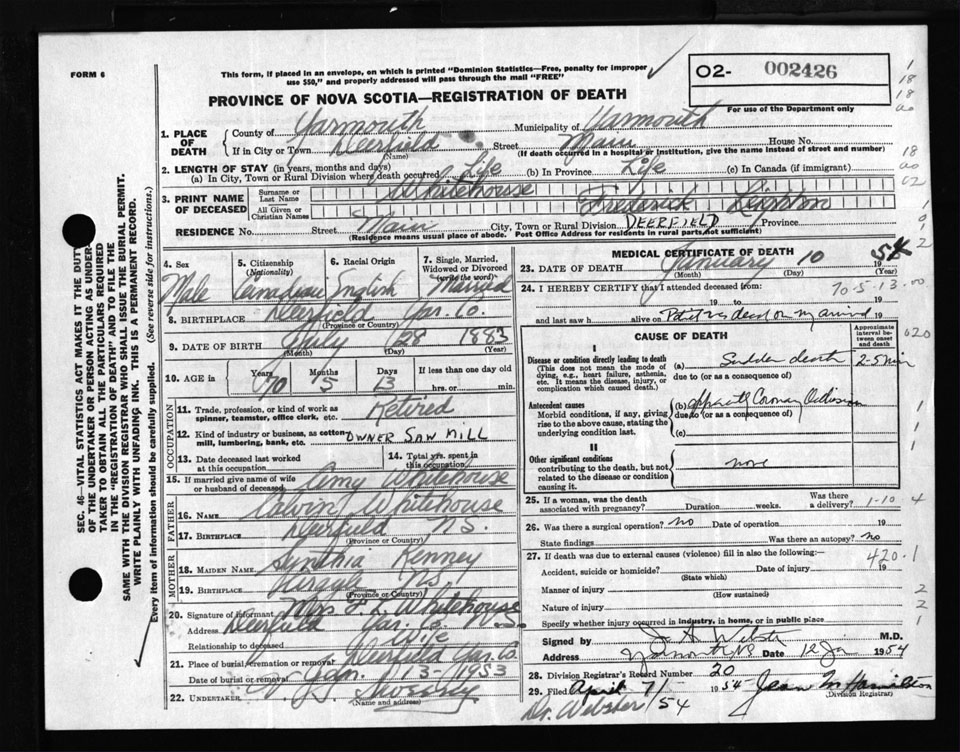 FORM 6
This form, if placed in an envelope, on which is printed "Dominion Statistics—Free, penalty for improper
use $50," and properly addressed will pass through the mail "FREE"
O2- 002426
For use of the Department only
PROVINCE OF NOVA SCOTIA—REGISTRATION OF DEATH
1. PLACE OF DEATH
County of Yarmouth Municipality of Yarmouth
If in City or Town Deerfield (Name) Street Main House No.
(If death occurred in a hospital or institution, give the name instead of street and number)
2. LENGTH OF STAY (in years, months and days)
(a) In City, Town or Rural Division where death occurred Life (b) In Province Life (c) In Canada (if immigrant)
3. PRINT NAME OF DECEASED
Surname or Last Name Whitehouse
All Given or Christian Names Frederick
RESIDENCE No. Street Main City, Town or Rural Division DEERFIELD Province
(Residence means usual place of abode. Post Office Address for residents in rural parts, not sufficient)
4. Sex Male
5. Citizenship (Nationality) Canadian
6. Racial Origin English
7. Single, Married, Widowed or Divorced (write the word) Married
8. BIRTHPLACE Deerfield Yar. Co.
(Province or Country)
9. DATE OF BIRTH July 28 1883
(Month) (Day) (Year)
10. AGE in Years 70 Months 5 Days 13 If less than one day
hrs. or min.
OCCUPATION
11. Trade, profession, or kind of work as spinner, teamster, office clerk, etc. Retired
12. Kind of industry or business, as cotton-mill, lumbering, bank, etc. OWNER SAW MILL
13. Date deceased last worked at this occupation
14. Total yrs. spent in this occupation
15. If married give name of wife or husband of deceased Amy Whitehouse
FATHER
16. Name Calvin Whitehouse
17. Birthplace Deerfield N.S.
(Province or Country)
MOTHER
18. MAIDEN NAME Synthia Kenney
19. BIRTHPLACE N.S.
(Province or Country)
20. Signature of informant Mrs F. L. Whitehouse
Address Deerfield Yar. Co. N.S.
Relationship to deceased Wife
21. Place of burial, cremation or removal Deerfield Yar. Co.
Date of burial or removal Jan. 13 - 1953
22. UNDERTAKER Sweeny
(Name and address)
MEDICAL CERTIFICATE OF DEATH
23. DATE OF DEATH January 10 1954
(Month) (Day) (Year)
24. I HEREBY CERTIFY that I attended deceased from:
70-5-13.00
19 to 19
and last saw h alive on Patient was dead on my arrival 19
CAUSE OF DEATH
Approximate interval between onset and death
I
Disease or condition directly leading to death
(This does not mean the mode of dying, e.g., heart failure, asthenia, etc. It means the disease, injury, or complication which caused death.)
(a) Sudden death 2-5 min
due to (or as a consequence of)
Antecedent causes
Morbid conditions, if any, giving rise to the above cause, stating the underlying condition last.
(b) Coronary Occlusion
due to (or as a consequence of)
(c)
II
Other significant conditions
contributing to the death, but not related to the disease or condition causing it
none
25. If a woman, was the death associated with pregnancy? Duration weeks. Was there a delivery? 1-10 4
26. Was there a surgical operation? no Date of operation 19
State findings Was there an autopsy? no
27. If death was due to external causes (violence) fill in also the following:—
420.1
Accident, suicide or homicide? Date of injury 19
(State which)
Manner of injury
(How sustained)
Nature of injury
Specify whether injury occurred in industry, in home, or in public place
Signed by Webster M.D.
Address Yarmouth NS Date 12 Jan 1954
28. Division Registrar's Record Number 20
29. Filed April 7/- 1954 - Jean M Hamilton
(Division Registrar)
Dr. Webster /54
SEC. 46—VITAL STATISTICS ACT MAKES IT THE DUTY
OF THE UNDERTAKER OR PERSON ACTING AS UNDER-
TAKER TO OBTAIN ALL THE PARTICULARS REQUIRED
IN THE "REGISTRATION OF DEATH" AND TO FILE THE
SAME WITH THE DIVISION REGISTRAR WHO SHALL ISSUE THE BURIAL PERMIT.
WRITE PLAINLY WITH UNFADING INK. THIS IS A PERMANENT RECORD.
Every item of information should be carefully supplied. (See reverse side for instructions.)